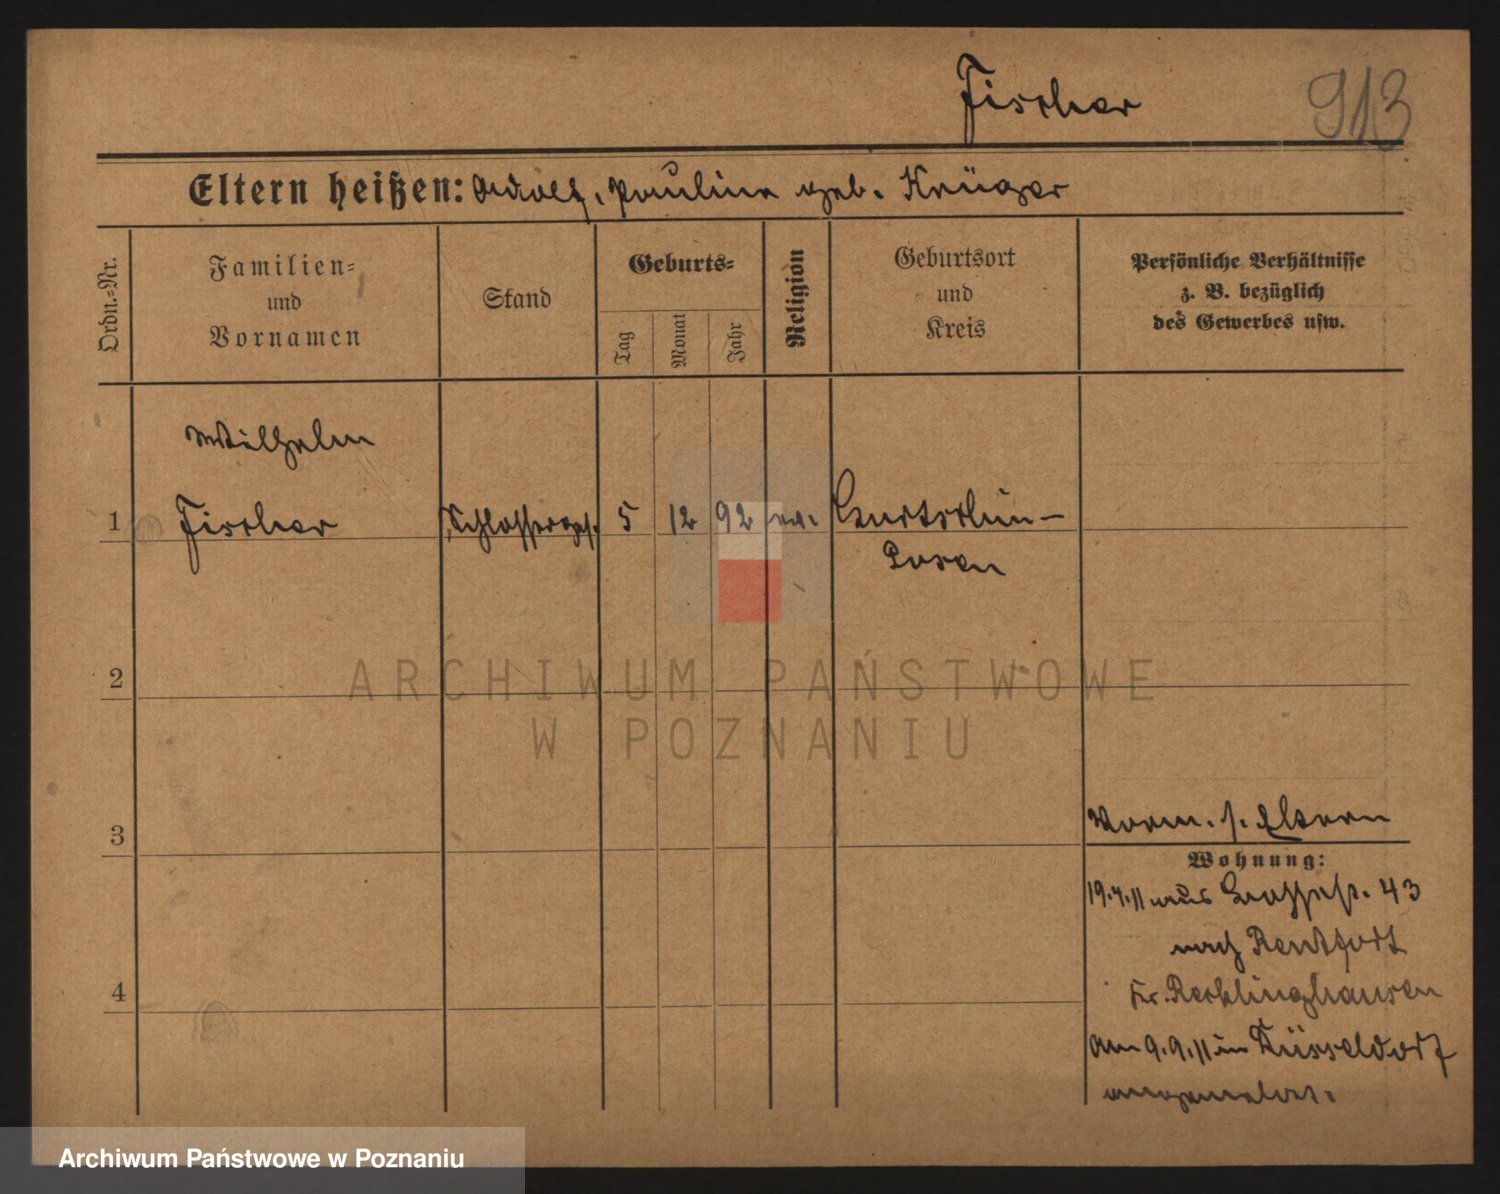 Fischer
913
Eltern heißen: Adolf, Pauline geb. Krüger
Ordn.-Nr.
Familien-
und
Vornamen
Stand
Geburts-
Tag
Monat
Jahr
Religion
Geburtsort
und
Kreis
Persönliche Verhältnisse
z. B. bezüglich
des Gewerbes usw.
Wilhelm
1 Fischer Schlosserges. 5 12 92 ev. Gurtschin-
Posen
2
3
4
Vorm. s. Eltern
Wohnung:
19.4.11 aus 43
nach Rentfort
Kr. Recklinghausen
am 9.9.11 in Düsseldorf
angemeldet.
ARCHIWUM PAŃSTWOWE
W POZNANIU
Archiwum Państwowe w Poznaniu